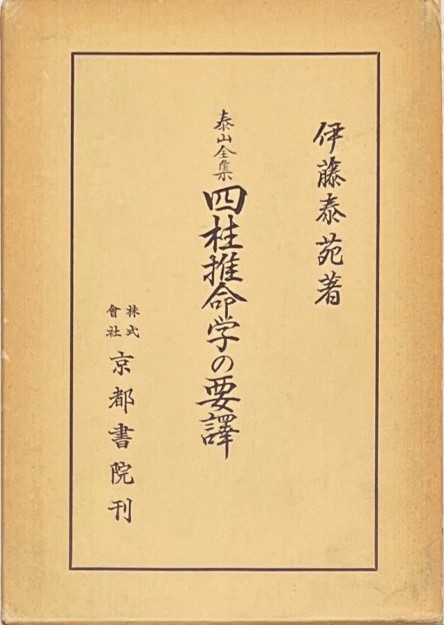 伊藤泰苑著
泰山全集
四柱推命学の要譯
株式會社
京都書院刊